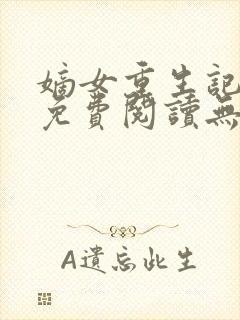 嫡女重生記
免費閱讀無
A遺忘此生